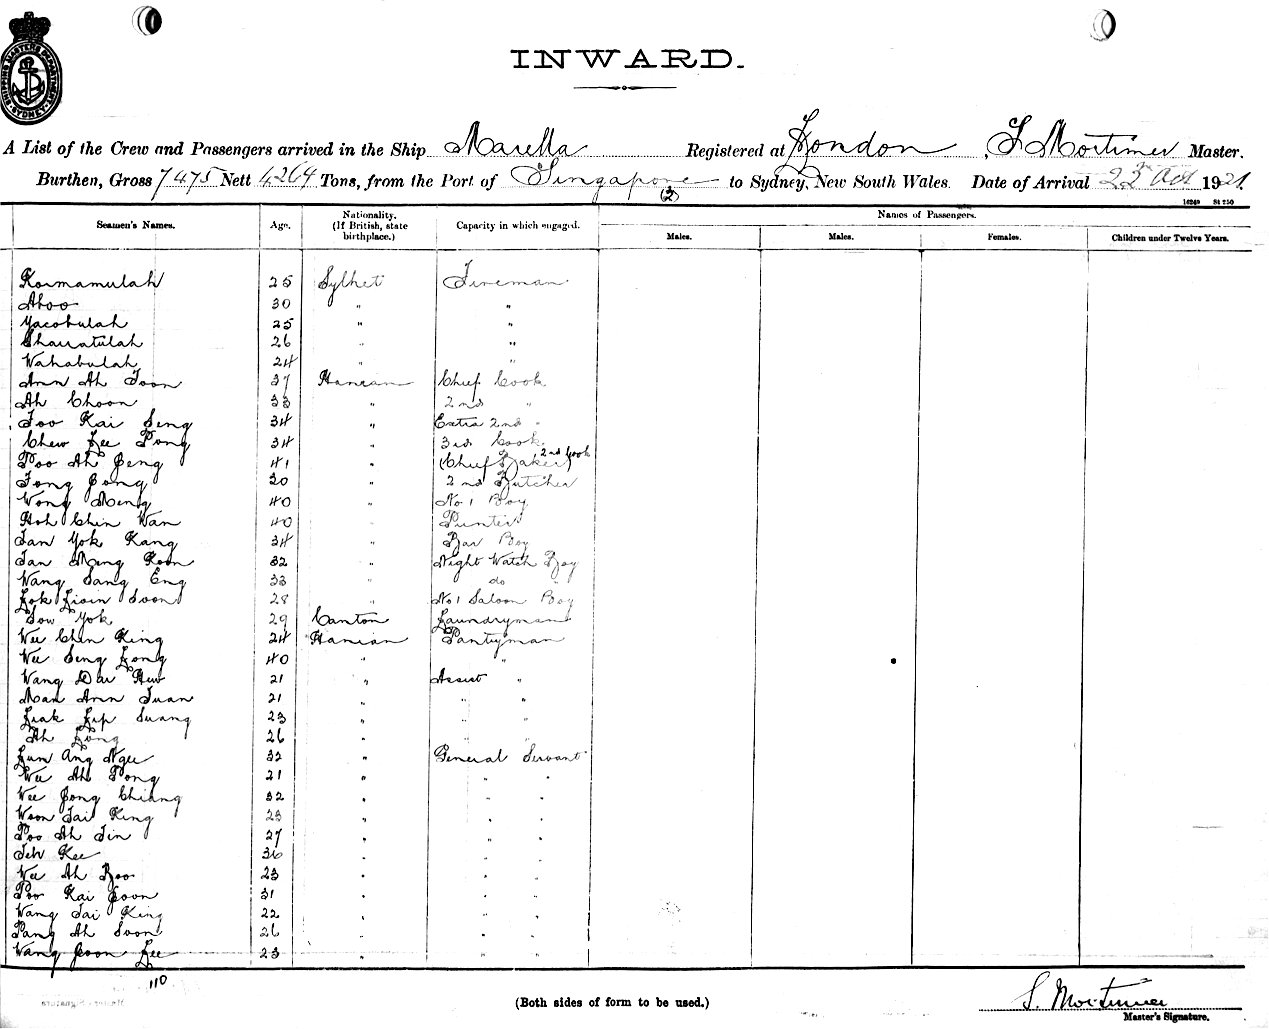 SHIPPING MASTERS DEPARTMENT SYDNEY
INWARD.
A List of the Crew and Passengers arrived in the Ship Marella Registered at London, S Mortimer Master.
Burthen, Gross 7475 Nett 4,264 Tons, from the Port of Singapore to Sydney, New South Wales. Date of Arrival 23 Oct 1921.
(2)
16249 St 250
Seamen's Names. Age. Nationality. (If British, state birthplace.) Capacity in which engaged. Names of Passengers.
Males. Males. Females. Children under Twelve Years.
Kormamulah 25 Sylhet Fireman
Aboo 30 " "
Yacobulah 25 " "
26 " "
Wahabulah 24 " "
Ann Ah Soon 37 Hainan Chief Cook
Ah Choon 33 " 2nd "
Foo Kai Seng 34 " Extra 2nd "
Chew Lee Pong 34 " 3rd Cook
Poo Ah Jeng 41 " (Chief Baker) 2nd Cook
Fong Jong 30 " 2nd Butcher
Wong Meng 40 " No. 1 Boy
Hoh Chin Wan 40 "
Tan Yok Kang 34 " Bar Boy
Tan Meng Koon 32 " Night Watch Boy
Wang Sang Eng 33 " do "
Lok Liain Soon 28 " No 1 Saloon Boy
Sow Yok 29 Canton Laundryman
Wee Chin King 24 Hainan Pantryman
Wee Seng Long 40 " "
Wang Dai Huw 21 " Assist "
Man Ann Juan 21 " " "
Liak Lip Suang 23 " " "
Ah Long 26 " " "
Lun Ang Ngee 32 " General Servant
Wee Ah Pong 21 " " "
Wee Jong Chiang 32 " " "
Woon Tai King 23 " " "
Poo Ah Tin 27 " " "
Teh Kee 36 " " "
Wee Ah Boo 23 " " "
Poo Kai Joon 31 " " "
Wang Tai King 22 " " "
Pang Ah Soon 26 " " "
Wang Joon Lee 23 " " "
110
(Both sides of form to be used.)
S. Mortimer
Master's Signature.